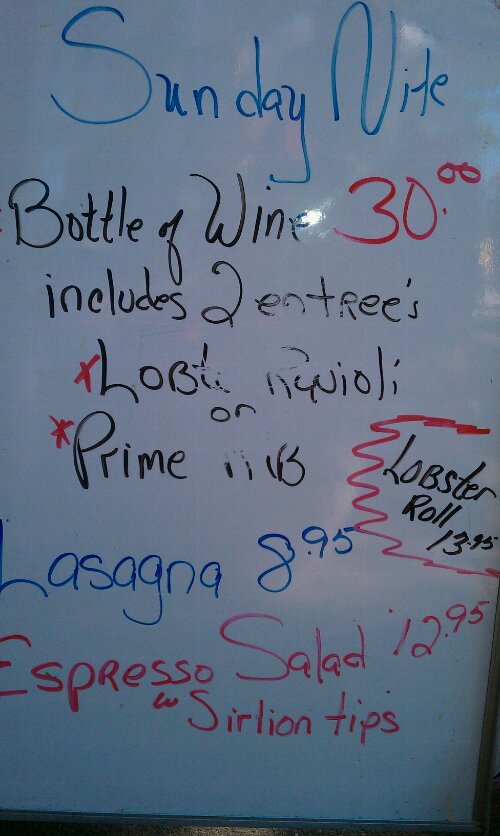 Sunday Nite
Bottle of Wine 30.00
includes 2 entree's
*Lobt Ravioli
or
*Prime rib
Lobster
Roll
13.95
Lasagna 8.95
Espresso Salad 12.95
w Sirlion tips